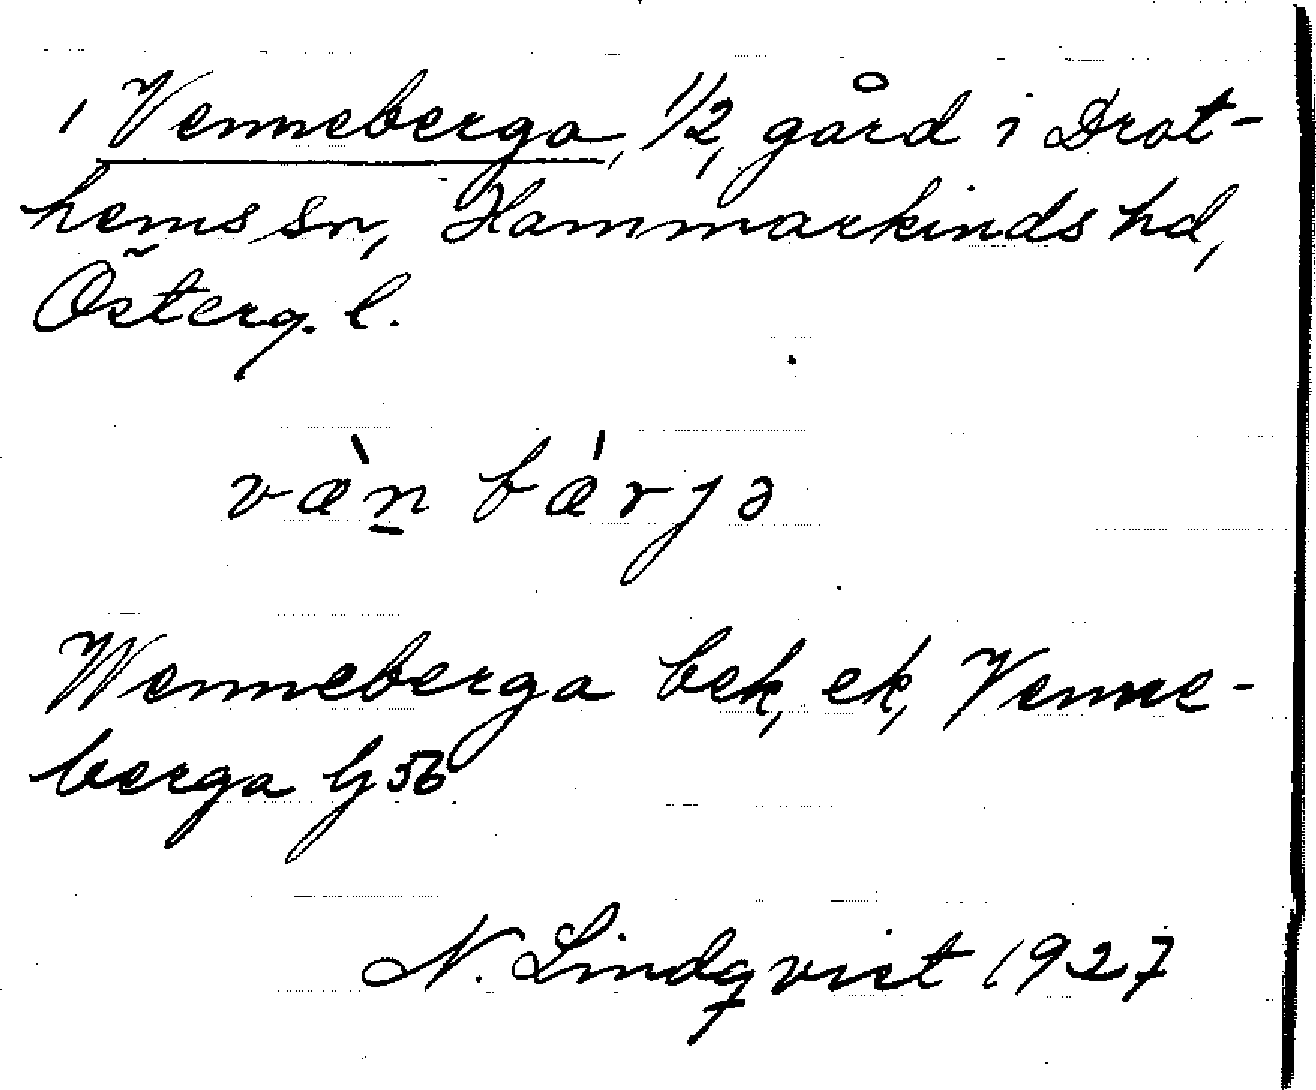 1 Venneberga, 1/2, gård i Drot-
hems sn, Hammarkinds hd,
Österg. l.
væ̀n̲ bǽrjə
Wenneberga bek, ek, Venne-
berga Gj 56
N. Lindqvist 1927